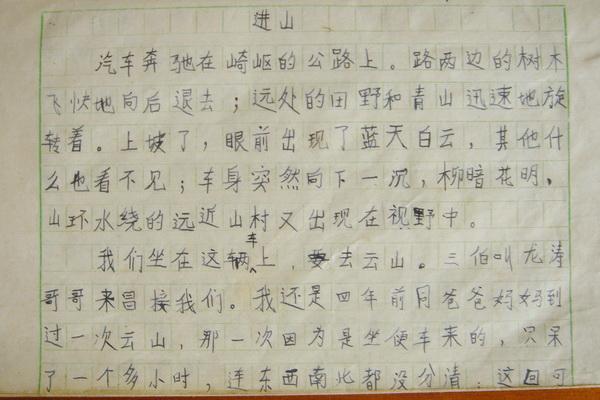 进山
汽车奔驰在崎岖的公路上。路两边的树木
飞快地向后退去；远处的田野和青山迅速地旋
转着。上坡了，眼前出现了蓝天白云，其他什
么也看不见；车身突然向下一沉，柳暗花明，
山环水绕的远近山村又出现在视野中。
我们坐在这辆车上，要去云山。三伯叫龙涛
哥哥来昌接我们。我还是四年前同爸爸妈妈到
过一次云山，那一次因为是坐便车来的，只呆
了一个多小时，连东西南北都没分清；这回可